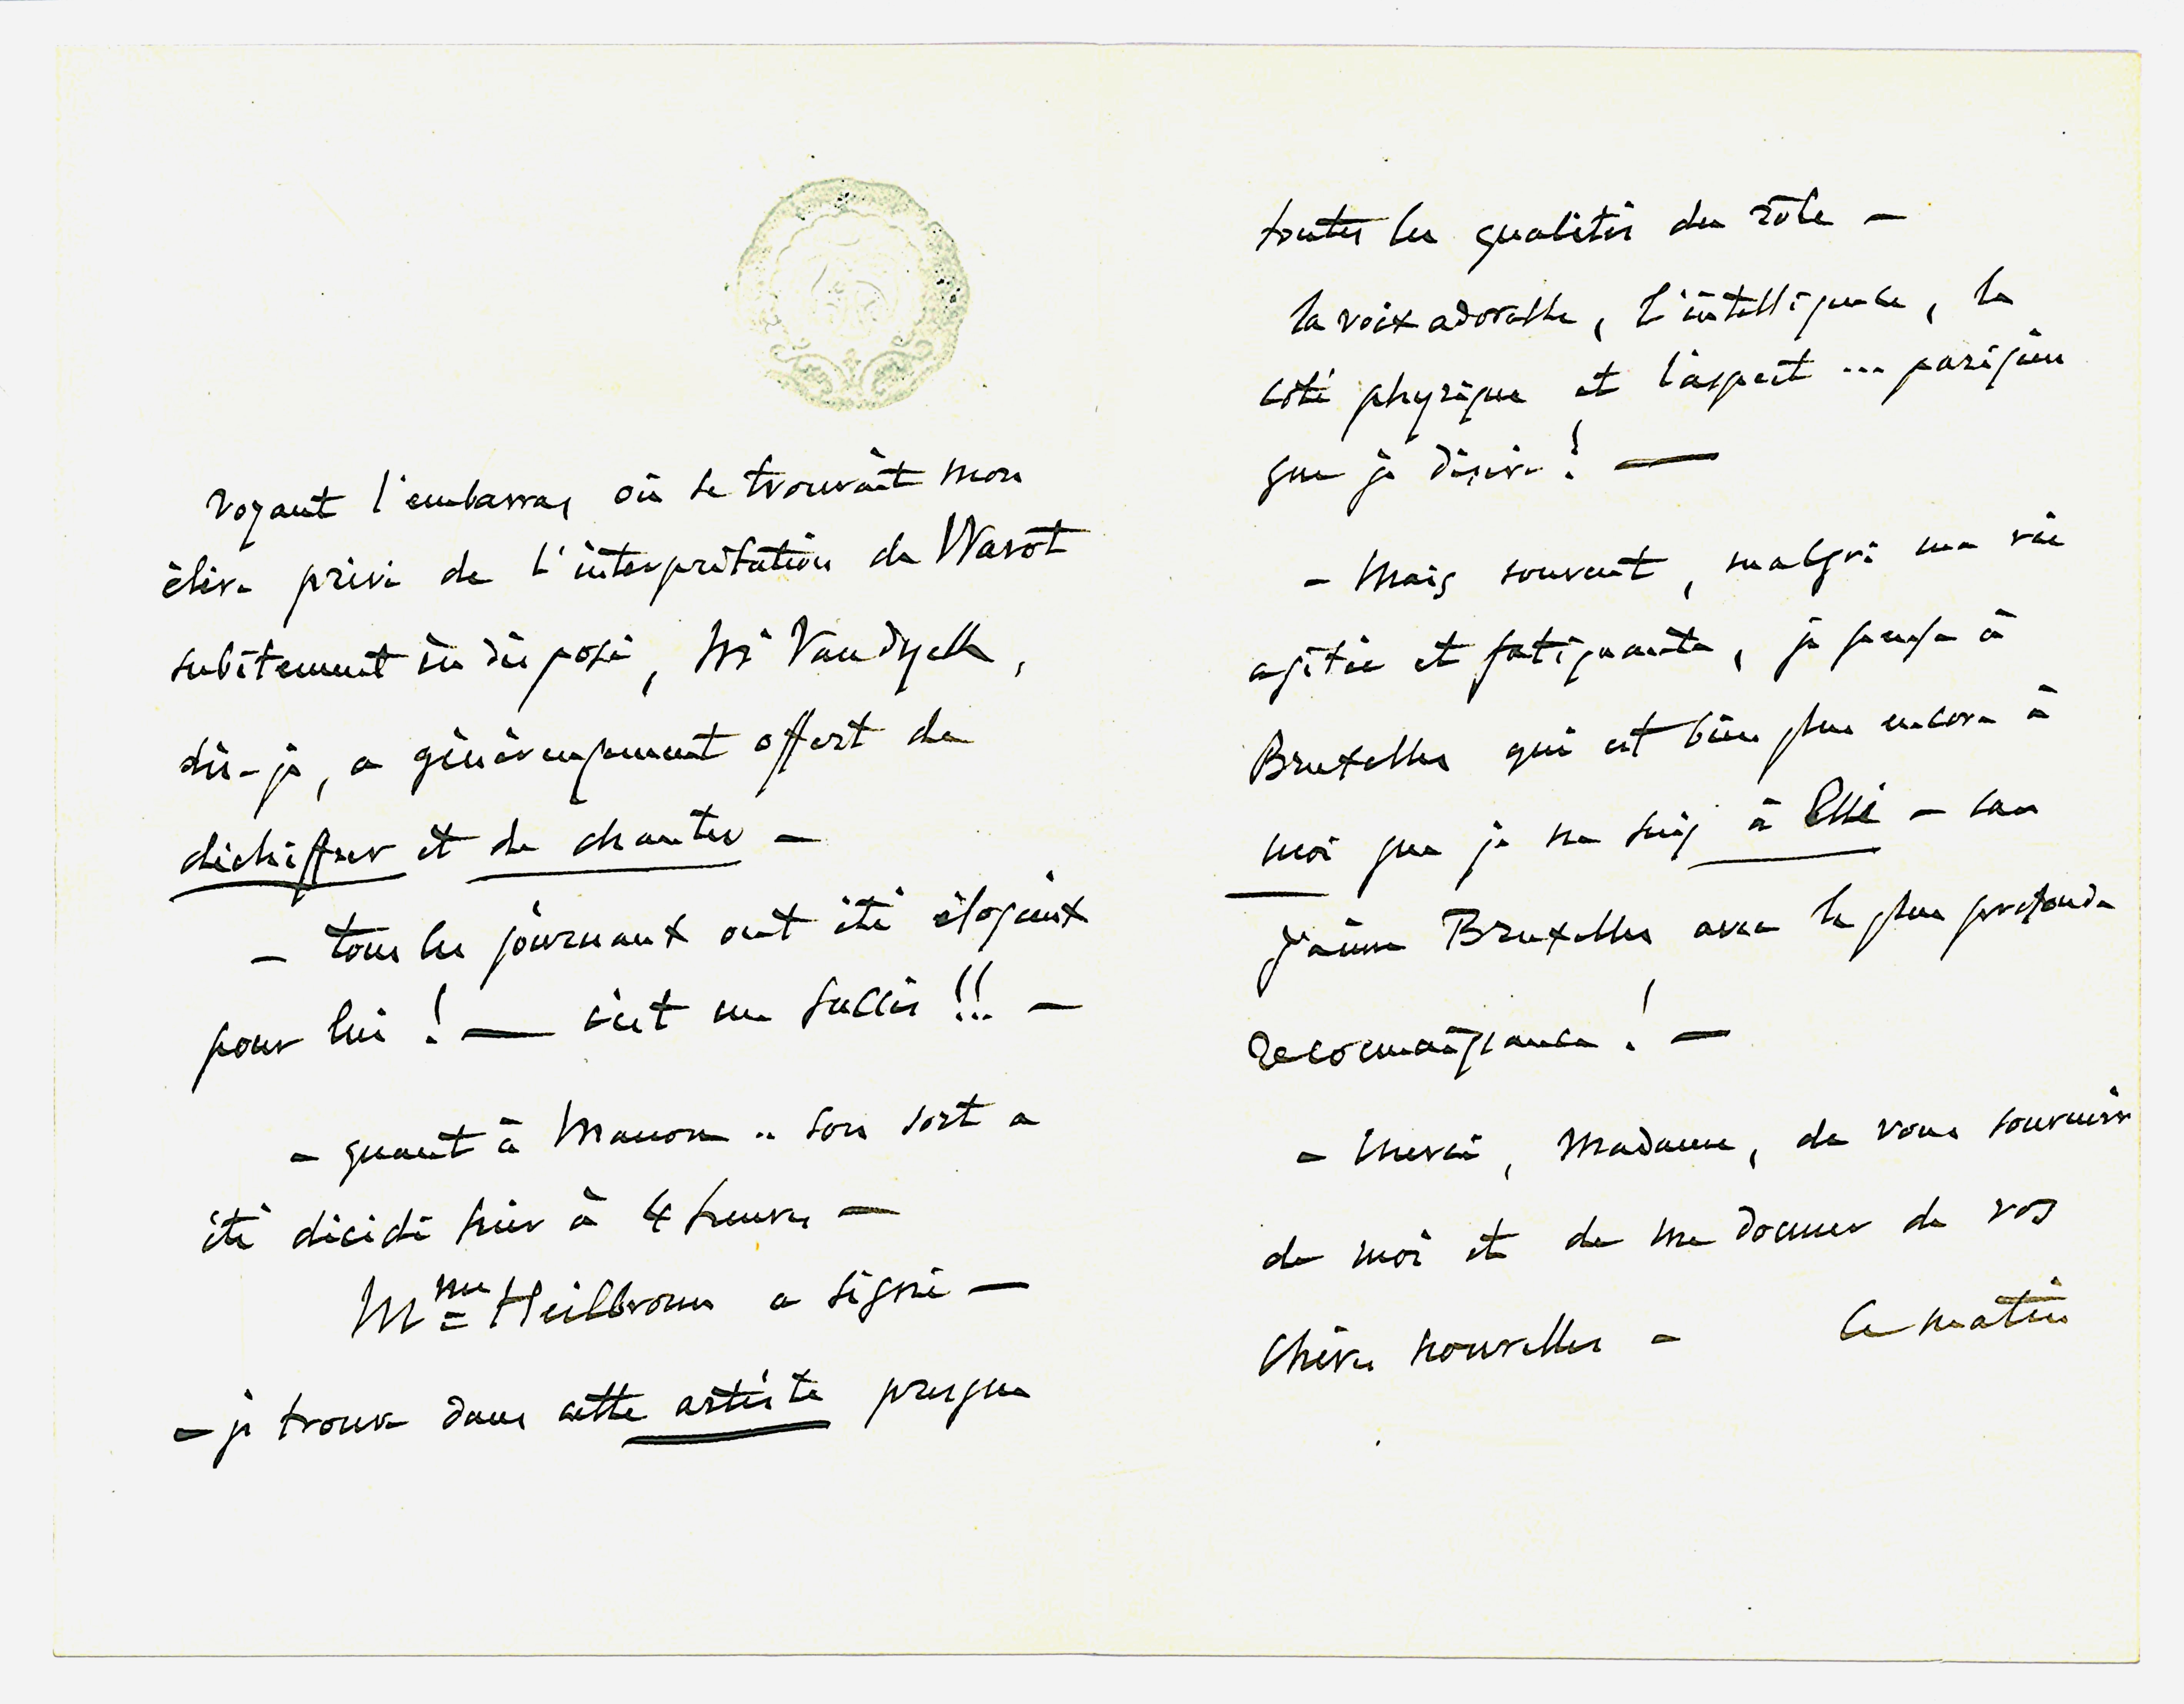 voyant l'embarras où se trouvait mon
élève privé de l'interprétation de Warot
subitement indisposé, Mr Vandyck,
dis-je, a généreusement offert de
déchiffrer et de chanter —
— tous les journaux ont été élogieux
pour lui ! — c'est un succès !!! —
— quant à Manon .. son sort a
été décidé hier à 4 heures —
Mme Heilbronn a signé —
— je trouve dans cette artiste presque
toutes les qualités du rôle —
la voix adorable, l'intelligence, le
côté physique et l'aspect ... parisien
que je désire ! —
— Mais souvent, malgré ma vie
agitée et fatigante, je pense à
Bruxelles qui est bien plus encore à
moi que je ne suis à Elle — car
j'aime Bruxelles avec la plus profonde
reconnaissance ! —
— Merci, Madame, de vous souvenir
de moi et de me donner de vos
chères nouvelles — Ce matin